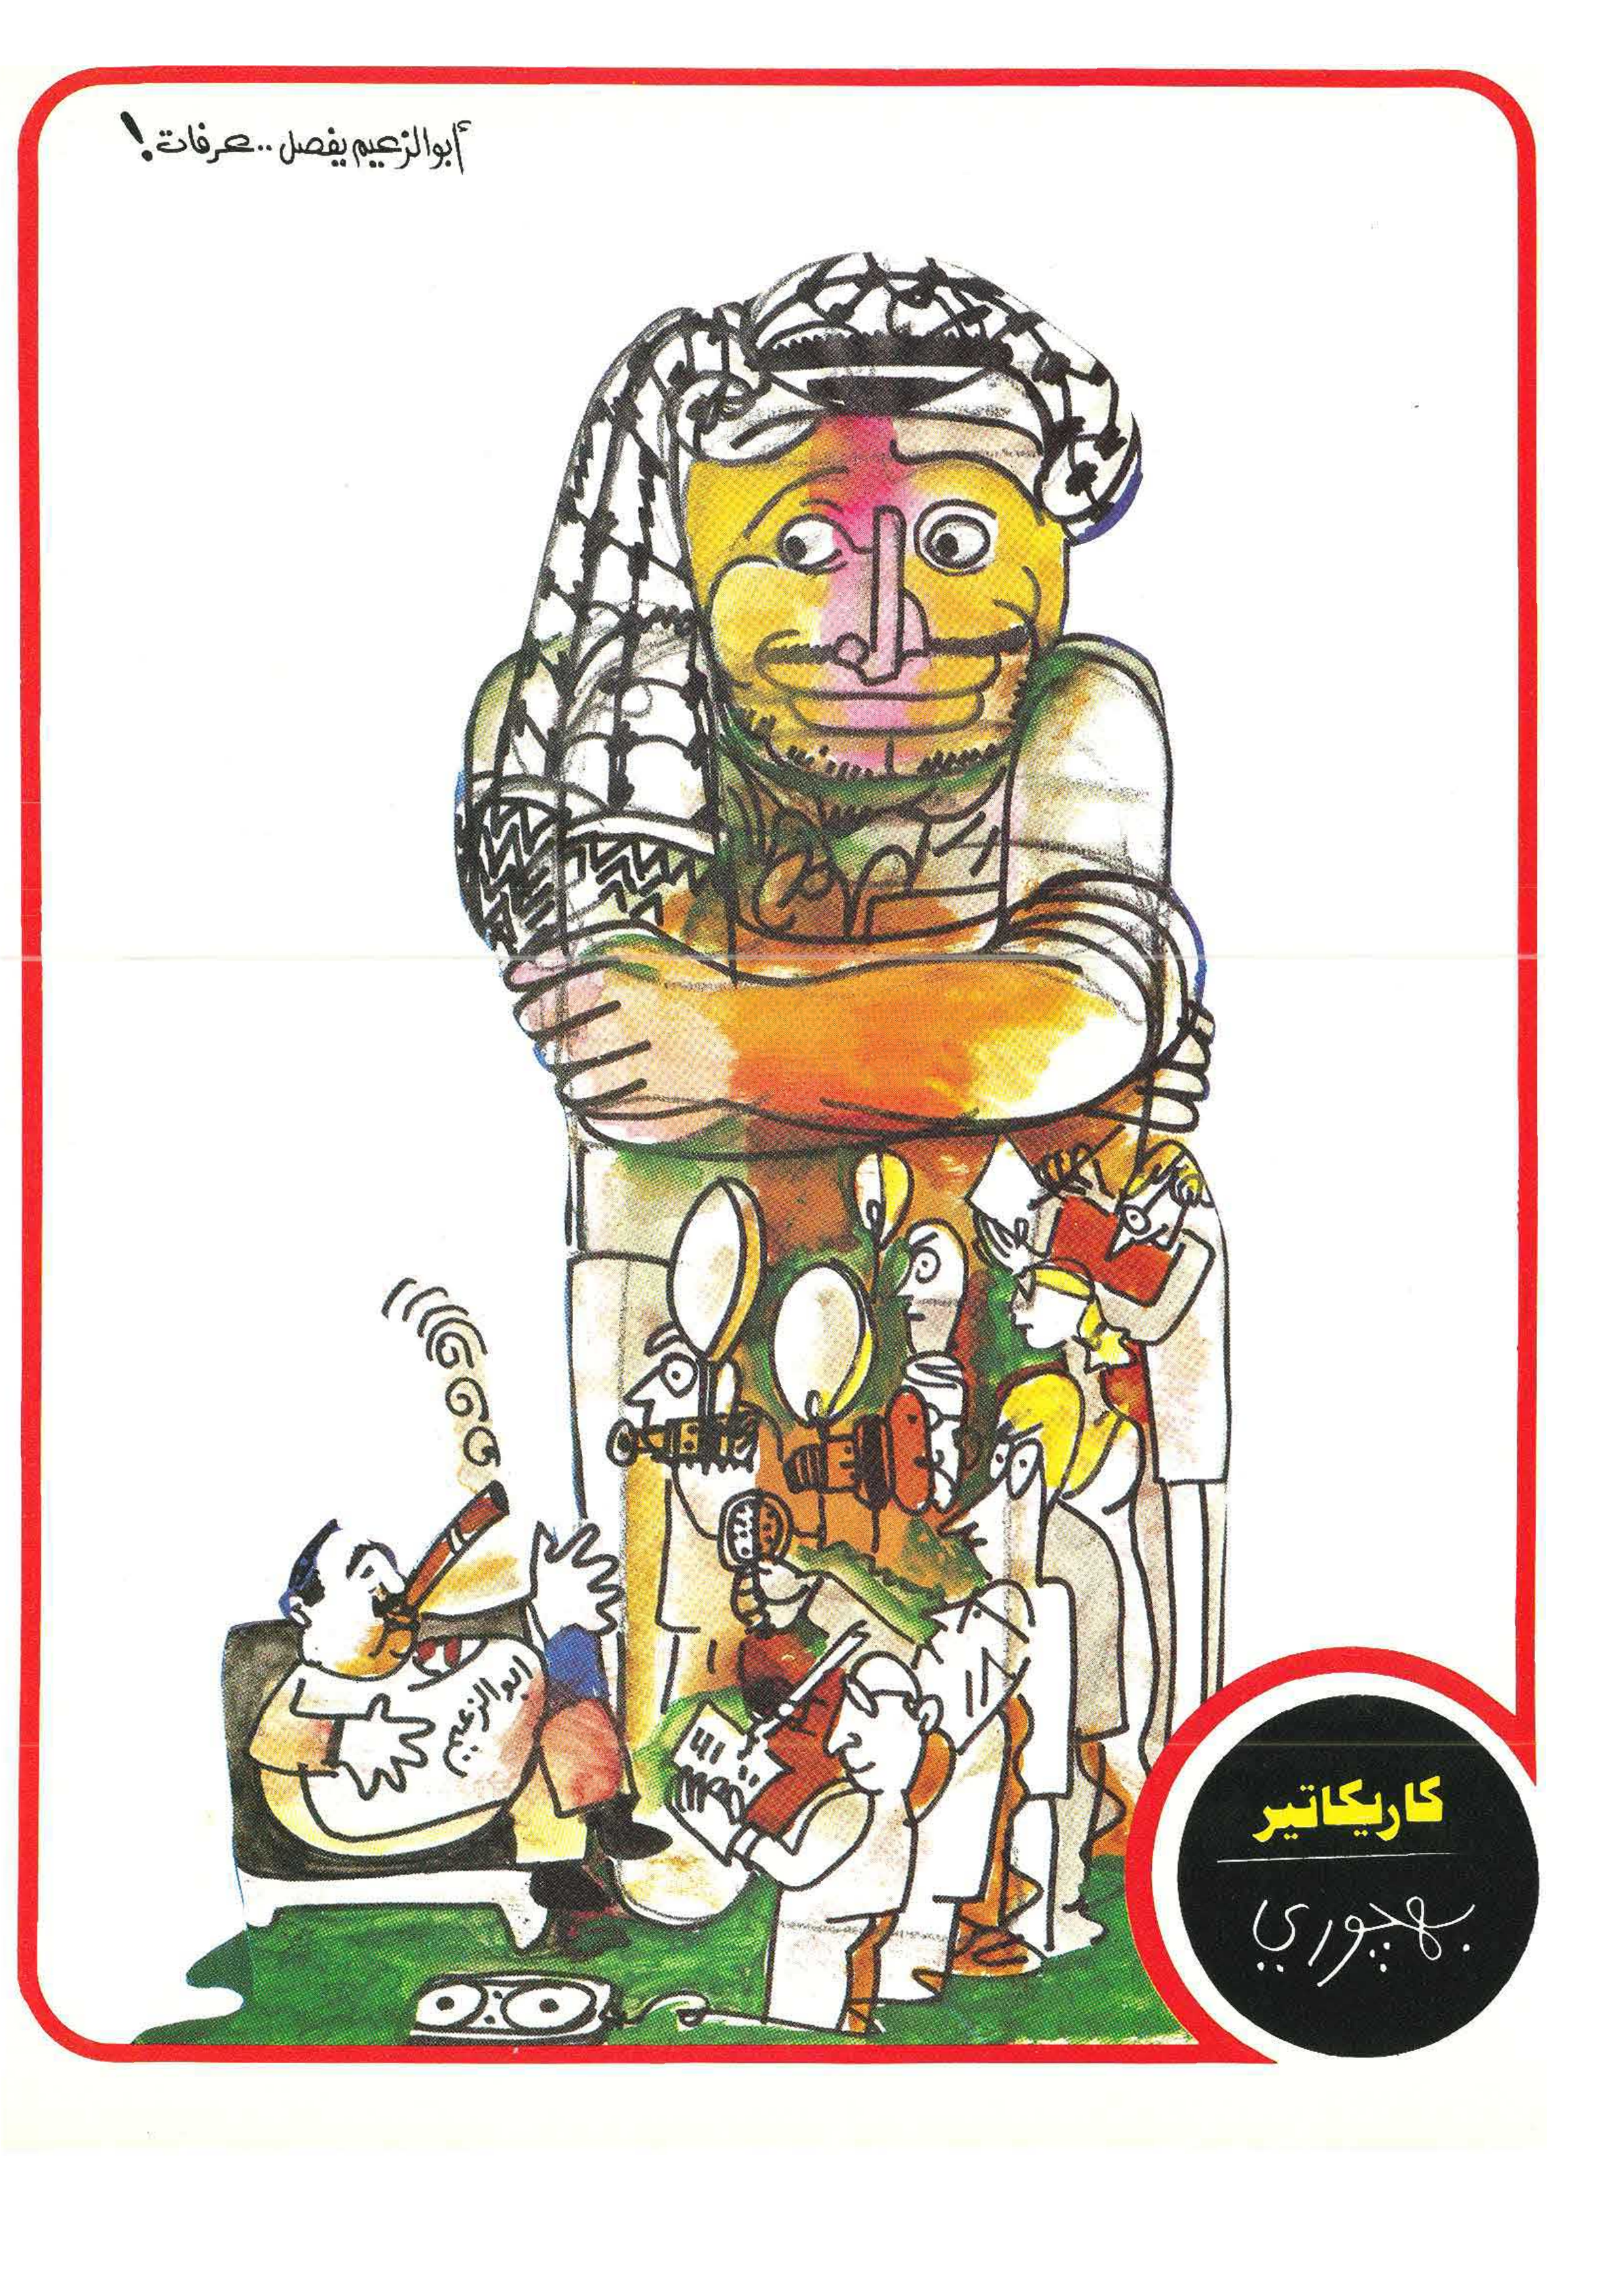 أبوالزعيم يفصل .. عرفات !
ابو الزعيم
كاريكاتير
بهجوري